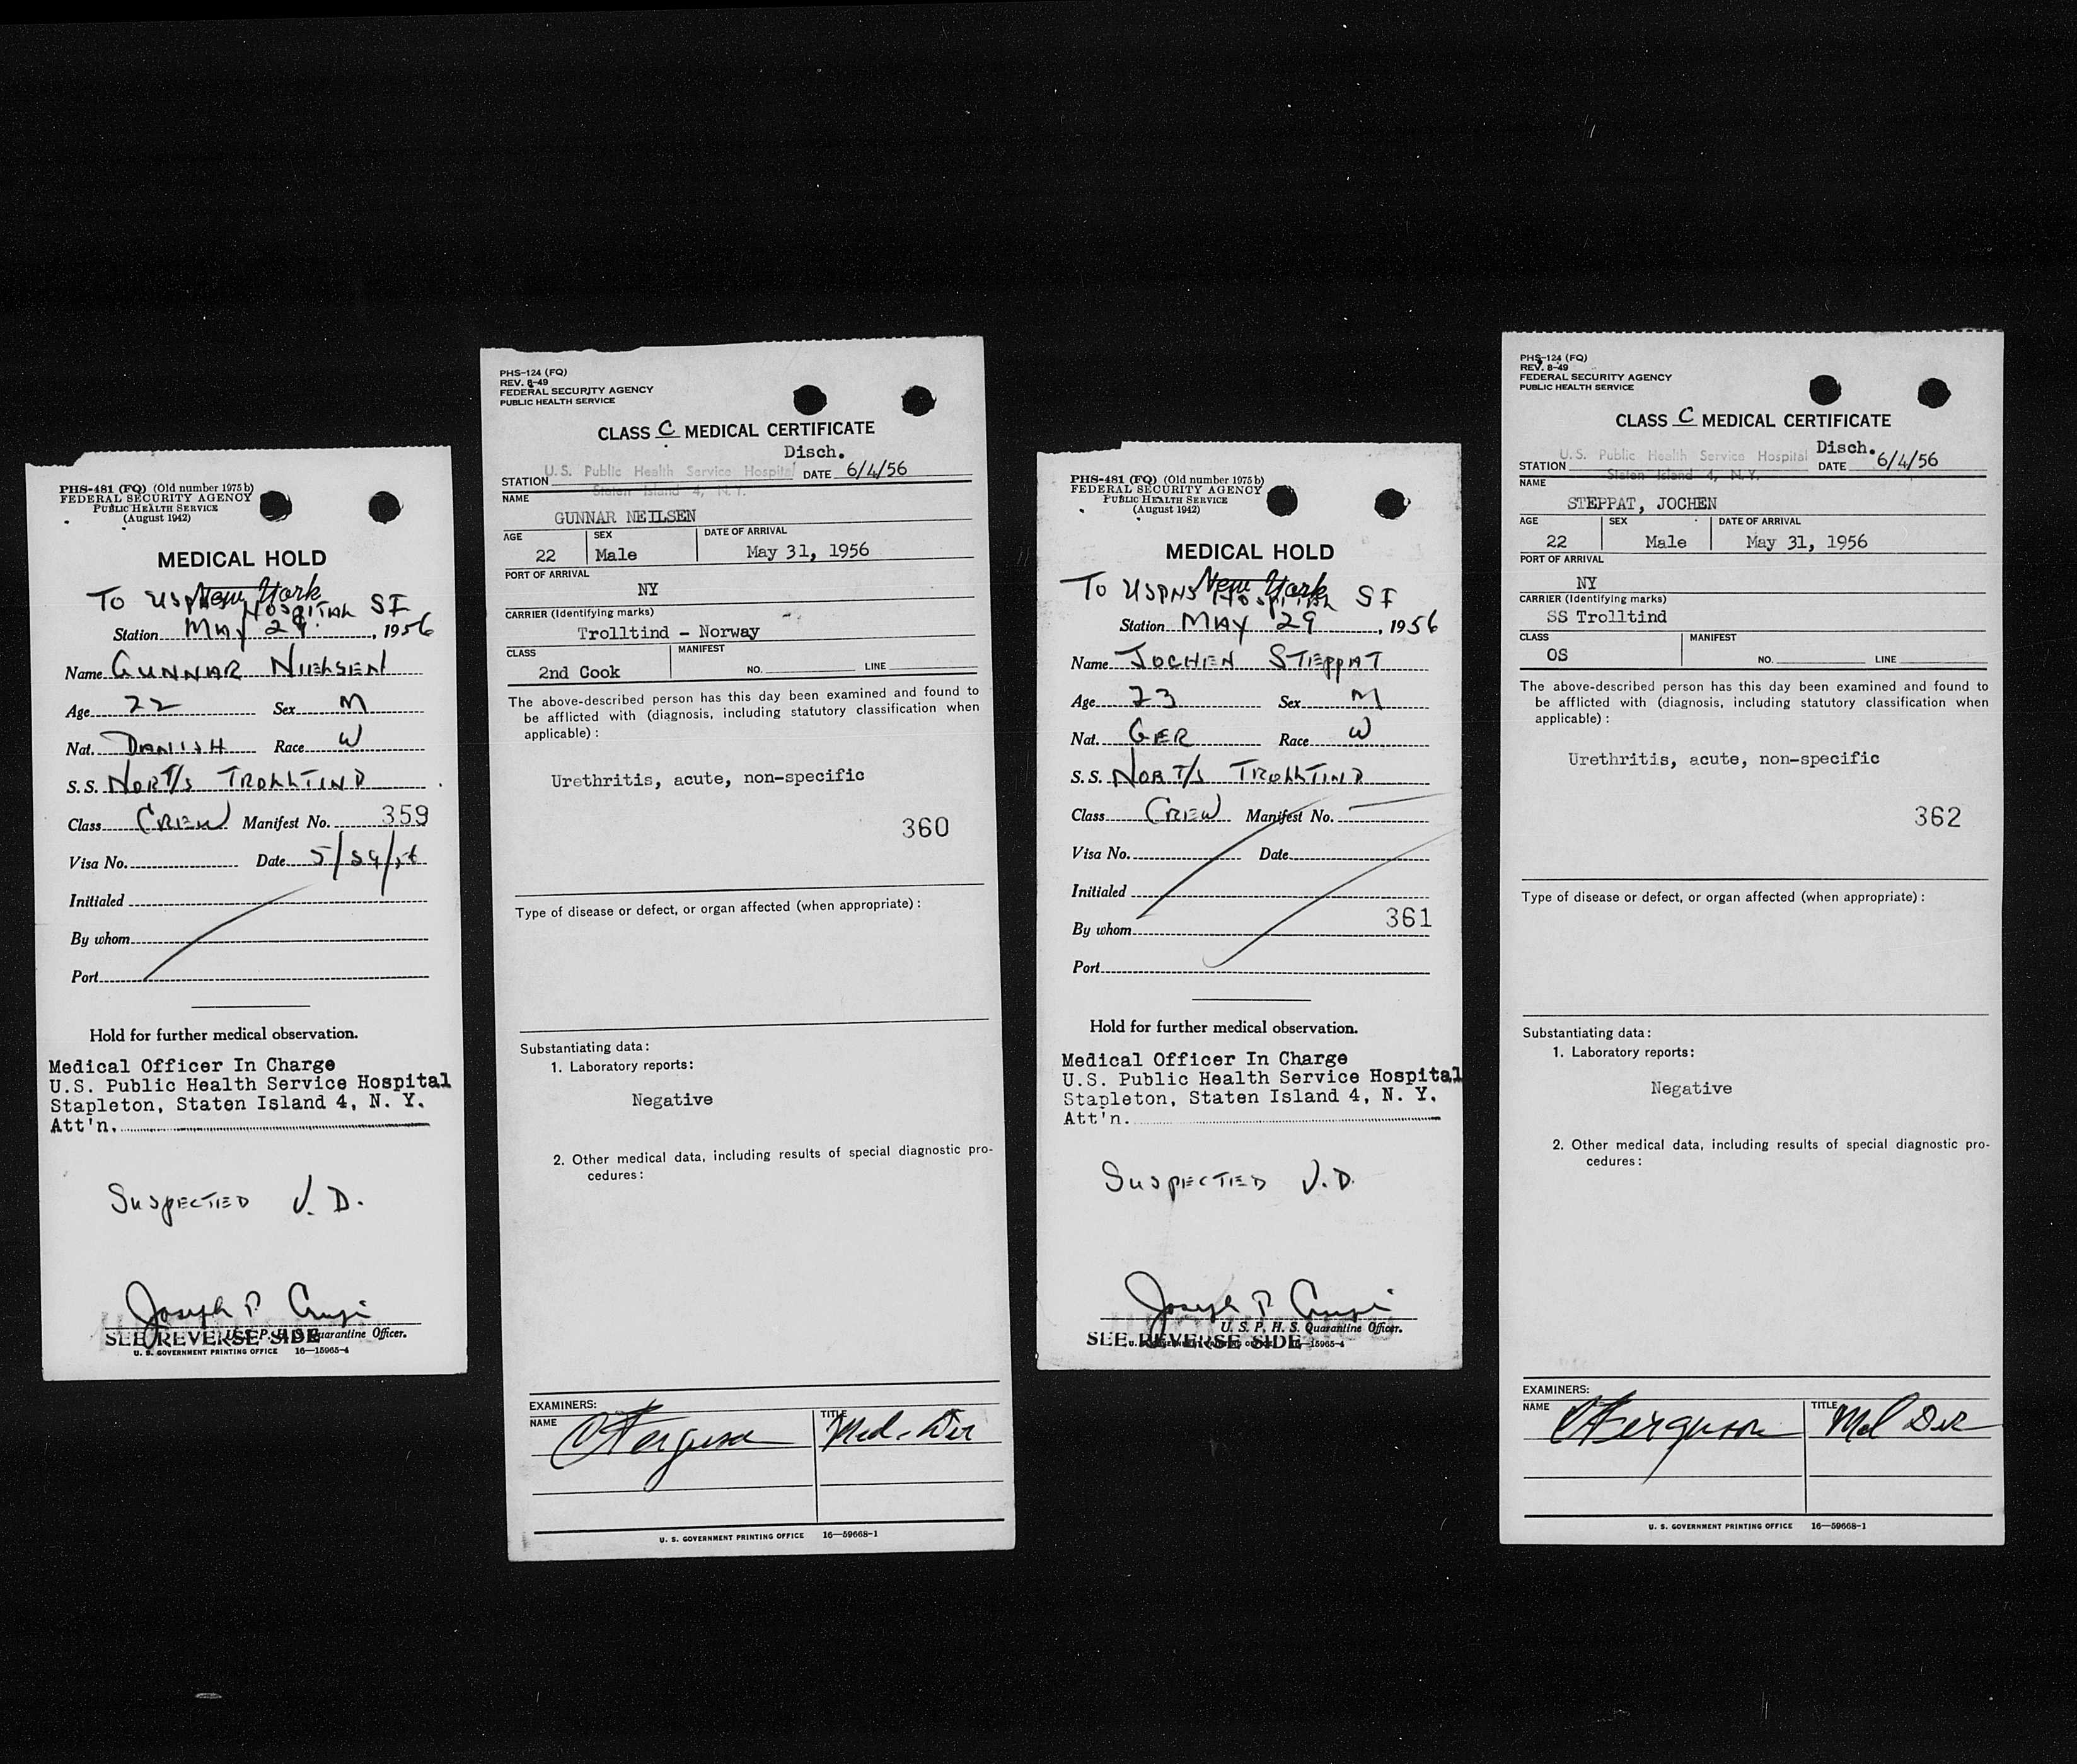 PHS-481 (FQ) (Old number 1975b)
FEDERAL SECURITY AGENCY
PUBLIC HEALTH SERVICE
(August 1942)
MEDICAL HOLD
New York
TO USPHS HOSPITAL SI
Station MAY 29, 1956
Name GUNNAR NIELSEN
Age 22 Sex M
Nat. DANISH Race W
S. S. NOR T/S TROLLTIND
Class CREW Manifest No. 359
Visa No. Date 5/29/56
Initialed
By whom
Port
Hold for further medical observation.
Medical Officer In Charge
U.S. Public Health Service Hospital
Stapleton, Staten Island 4, N. Y.
Att'n.
SUSPECTED V. D.
Joseph P.
U. S. P. H. S. Quarantine Officer.
SEE REVERSE SIDE
U. S. GOVERNMENT PRINTING OFFICE 16—15965-4
PHS-124 (FQ)
REV. 8-49
FEDERAL SECURITY AGENCY
PUBLIC HEALTH SERVICE
CLASS C MEDICAL CERTIFICATE
Disch.
STATION U.S. Public Health Service Hospital DATE 6/4/56
Staten Island 4, N.Y.
NAME
GUNNAR NEILSEN
AGE SEX DATE OF ARRIVAL
22 Male May 31, 1956
PORT OF ARRIVAL
NY
CARRIER (Identifying marks)
Trolltind - Norway
CLASS MANIFEST
2nd Cook NO. LINE
The above-described person has this day been examined and found to
be afflicted with (diagnosis, including statutory classification when
applicable):
Urethritis, acute, non-specific
360
Type of disease or defect, or organ affected (when appropriate):
Substantiating data:
1. Laboratory reports:
Negative
2. Other medical data, including results of special diagnostic pro-
cedures:
EXAMINERS:
NAME TITLE
Ferguson Med. Dir
U. S. GOVERNMENT PRINTING OFFICE 16—59668-1
PHS-481 (FQ) (Old number 1975b)
FEDERAL SECURITY AGENCY
PUBLIC HEALTH SERVICE
(August 1942)
MEDICAL HOLD
New York
TO USPHS HOSPITAL SI
Station MAY 29, 1956
Name JOCHEN STEPPAT
Age 23 Sex M
Nat. GER Race W
S. S. NOR T/S TROLLTIND
Class CREW Manifest No.
Visa No. Date
Initialed
361
By whom
Port
Hold for further medical observation.
Medical Officer In Charge
U.S. Public Health Service Hospital
Stapleton, Staten Island 4, N. Y.
Att'n.
SUSPECTED V. D.
Joseph P.
U. S. P. H. S. Quarantine Officer.
SEE REVERSE SIDE
16—15965-4
PHS-124 (FQ)
REV. 8-49
FEDERAL SECURITY AGENCY
PUBLIC HEALTH SERVICE
CLASS C MEDICAL CERTIFICATE
Disch.
STATION U.S. Public Health Service Hospital DATE 6/4/56
Staten Island 4, N.Y.
NAME
STEPPAT, JOCHEN
AGE SEX DATE OF ARRIVAL
22 Male May 31, 1956
PORT OF ARRIVAL
NY
CARRIER (Identifying marks)
SS Trolltind
CLASS MANIFEST
OS NO. LINE
The above-described person has this day been examined and found to
be afflicted with (diagnosis, including statutory classification when
applicable):
Urethritis, acute, non-specific
362
Type of disease or defect, or organ affected (when appropriate):
Substantiating data:
1. Laboratory reports:
Negative
2. Other medical data, including results of special diagnostic pro-
cedures:
EXAMINERS:
NAME TITLE
Ferguson Med Dir
U. S. GOVERNMENT PRINTING OFFICE 16—59668-1